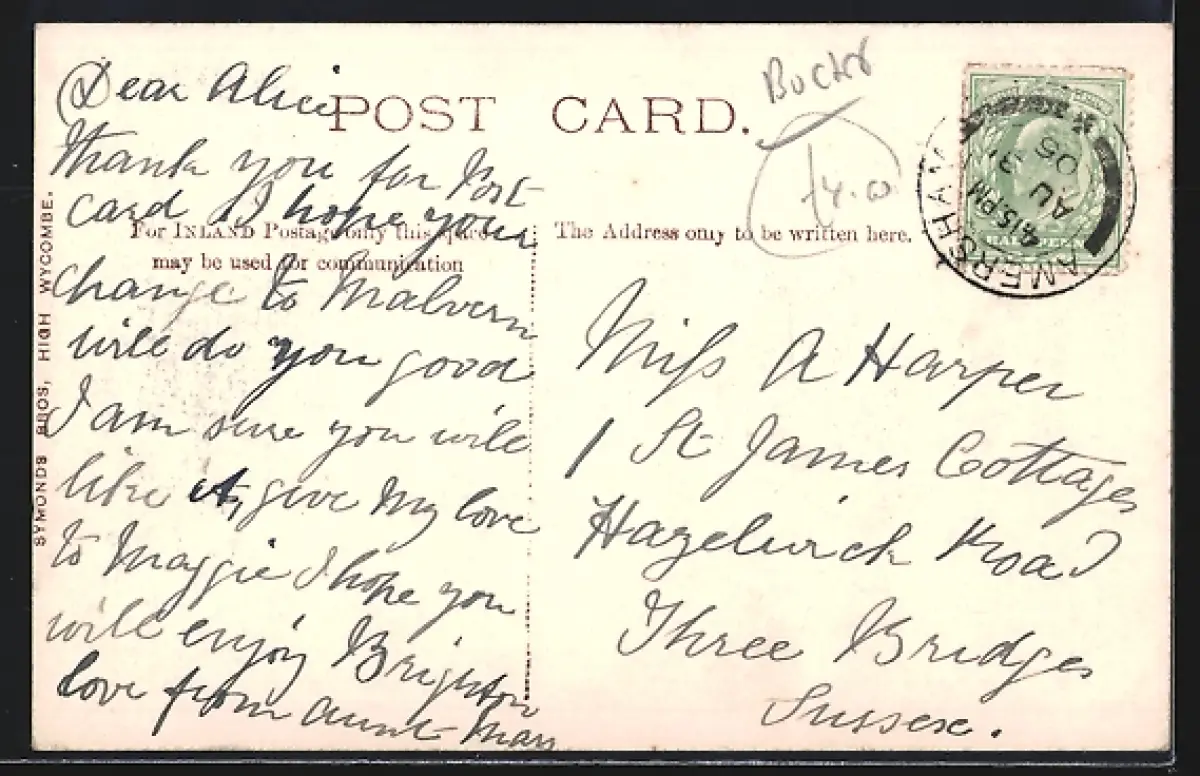 Dear Alice
Thank you for Post
card I hope your
change to Malvern
will do you good
I am sure you will
like it, give My love
to Maggie I hope you
will enjoy Brighton
love from aunt Mary
POST CARD.
For INLAND Postage only this space
may be used for communication
The Address only to be written here.
SYMONDS BROS, HIGH WYCOMBE.
Bucks
£4.00
AMERSHAM
4.15 PM
AU 31
05
HALFPENNY
Miss A Harper
1 St James Cottages
Hazelwick Road
Three Bridges
Sussex.